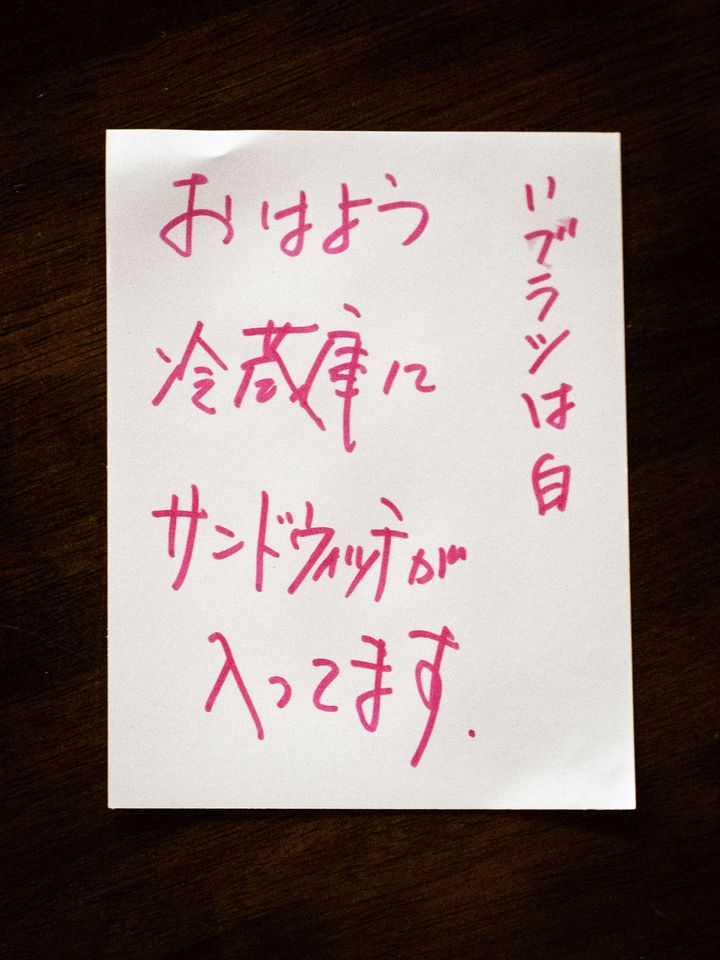 おはよう
冷蔵庫に
サンドウィッチが
入ってます.
いブラツは自